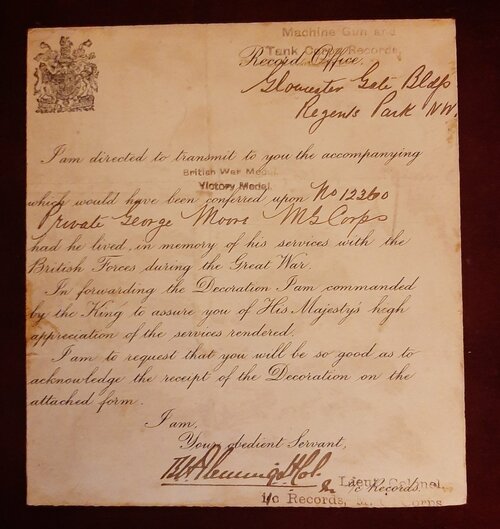 Machine Gun and
Tank Corps Records,
Record Office,
Gloucester Gate Bldgs
Regents Park NW.
I am directed to transmit to you the accompanying
British War Medal.
Victory Medal.
which would have been conferred upon No 12260
Private George Moore MG Corps
had he lived, in memory of his services with the
British Forces during the Great War.
In forwarding the Decoration I am commanded
by the King to assure you of His Majesty's high
appreciation of the services rendered.
I am to request that you will be so good as to
acknowledge the receipt of the Decoration on the
attached form.
I am,
Your obedient Servant,
Lieut Colonel,
i/c Records.
i/c Records, Corps